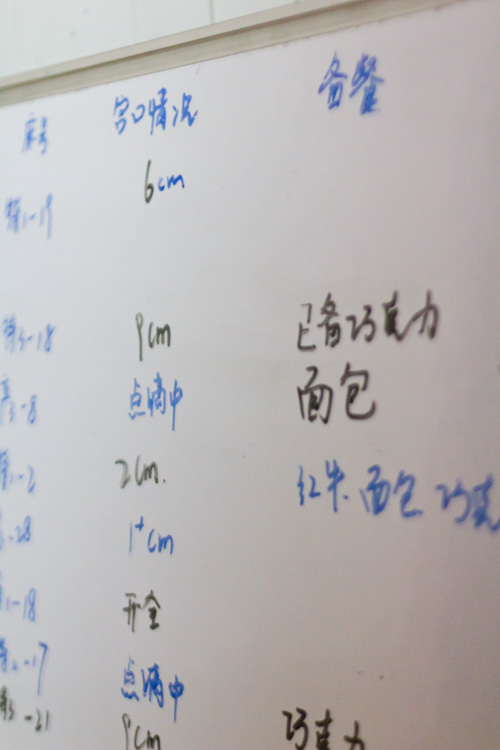 床号 宫口情况 备餐
-19 6cm
-18 9cm 已备巧克力
-8 点滴中 面包
-2 2cm. 红牛.面包 巧克
-28 1⁺cm
-18 开全
-17 点滴中
-21 9cm 巧克力